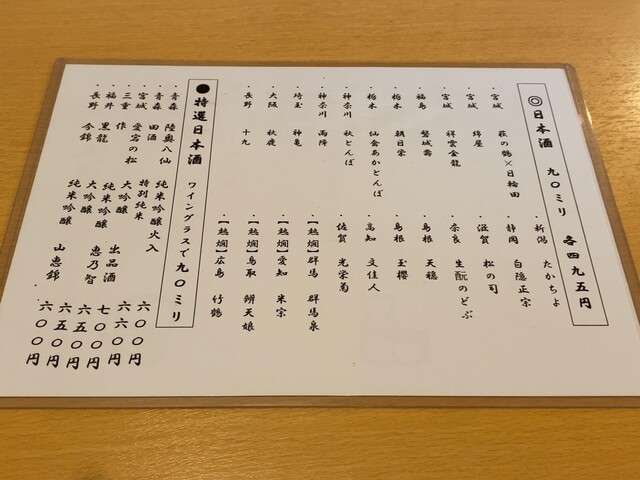 ◎日本酒 九〇ミリ 各四九五円
・宮城 萩の鶴×日輪田
・宮城 綿屋
・宮城 祥雲金龍
・福島 磐城壽
・栃木 朝日栄
・栃木 仙禽あかとんぼ
・神奈川 秋とんぼ
・神奈川 雨降
・埼玉 神亀
・大阪 秋鹿
・長野 十九
・新潟 たかちよ
・静岡 白隠正宗
・滋賀 松の司
・奈良 生酛のどぶ
・島根 天穏
・島根 玉櫻
・高知 文佳人
・佐賀 光栄菊
・【熱燗】群馬 群馬泉
・【熱燗】愛知 米宗
・【熱燗】鳥取 辨天娘
・【熱燗】広島 竹鶴
●特選日本酒 ワイングラスで九〇ミリ
・青森 陸奥八仙 純米吟醸火入 六〇〇円
・青森 田酒 特別純米 六六〇円
・宮城 愛宕の松 大吟醸 出品酒 七〇〇円
・三重 作 純米吟醸 恵乃智 六五〇円
・福井 黒龍 大吟醸 六五〇円
・長野 今錦 純米吟醸 山恵錦 六〇〇円